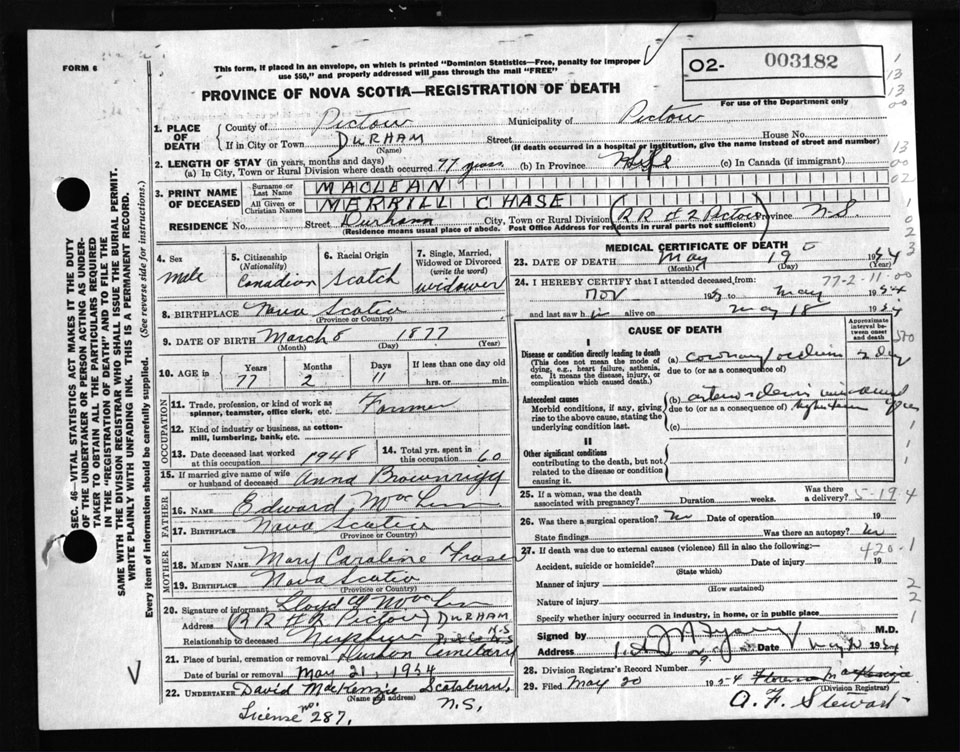 FORM 6
This form, if placed in an envelope, on which is printed "Dominion Statistics—Free, penalty for improper
use $50," and properly addressed will pass through the mail "FREE"
O2- 003182
For use of the Department only
PROVINCE OF NOVA SCOTIA—REGISTRATION OF DEATH
1. PLACE OF DEATH
County of Pictou Municipality of Pictou
If in City or Town DURHAM Street House No.
(Name) (If death occurred in a hospital or institution, give the name instead of street and number)
2. LENGTH OF STAY (in years, months and days)
(a) In City, Town or Rural Division where death occurred 77 years (b) In Province Life (c) In Canada (if immigrant)
3. PRINT NAME OF DECEASED
Surname or Last Name MACLEAN
All Given or Christian Names MERRILL CHASE
RESIDENCE No. Street Durham City, Town or Rural Division (RR # 2 Pictou) Province N.S.
(Residence means usual place of abode. Post Office Address for residents in rural parts not sufficient)
4. Sex Male
5. Citizenship (Nationality) Canadian
6. Racial Origin Scotch
7. Single, Married, Widowed or Divorced (write the word) widower
8. BIRTHPLACE Nova Scotia
(Province or Country)
9. DATE OF BIRTH March 8 1877
(Month) (Day) (Year)
10. AGE in Years 77 Months 2 Days 11 If less than one day old hrs. or min.
OCCUPATION
11. Trade, profession, or kind of work as spinner, teamster, office clerk, etc. Farmer
12. Kind of industry or business, as cotton-mill, lumbering, bank, etc.
13. Date deceased last worked at this occupation 1948
14. Total yrs. spent in this occupation 60
15. If married give name of wife or husband of deceased Anna Brownrigg
FATHER
16. Name Edward MacLean
17. Birthplace Nova Scotia
(Province or Country)
MOTHER
18. MAIDEN NAME Mary Caroline Fraser
19. BIRTHPLACE Nova Scotia
(Province or Country)
20. Signature of informant Lloyd MacLean
Address (RR # 2 Pictou) DURHAM N.S
Relationship to deceased Nephew
21. Place of burial, cremation or removal Durham Cemetary
Date of burial or removal May 21, 1954
22. UNDERTAKER David MacKenzie Scotsburn, N.S.
(Name and address)
License no. 287.
MEDICAL CERTIFICATE OF DEATH
23. DATE OF DEATH May 19 1954
(Month) (Day) (Year)
77-2-11-00
24. I HEREBY CERTIFY that I attended deceased from:
Nov 195 to May 1954
and last saw h alive on May 18 19
CAUSE OF DEATH
Approximate interval between onset and death
I
Disease or condition directly leading to death
(This does not mean the mode of dying, e.g., heart failure, asthenia, etc. It means the disease, injury, or complication which caused death.)
(a) coronary occlusion
due to (or as a consequence of)
Antecedent causes
Morbid conditions, if any, giving rise to the above cause, stating the underlying condition last.
(b)
due to (or as a consequence of)
(c)
II
Other significant conditions
contributing to the death, but not related to the disease or condition causing it.
25. If a woman, was the death associated with pregnancy? Duration weeks. Was there a delivery? 5-19-4
26. Was there a surgical operation? No Date of operation 19
State findings Was there an autopsy? No
27. If death was due to external causes (violence) fill in also the following:— 420-1
Accident, suicide or homicide? Date of injury 19
(State which)
Manner of injury
(How sustained)
Nature of injury
Specify whether injury occurred in industry, in home, or in public place
Signed by M.D.
Address Date May 20 1954
28. Division Registrar's Record Number 9.
29. Filed May 20 1954 Florence MacKenzie
(Division Registrar)
A. F. Stewart
SEC. 46—VITAL STATISTICS ACT MAKES IT THE DUTY
OF THE UNDERTAKER OR PERSON ACTING AS UNDER-
TAKER TO OBTAIN ALL THE PARTICULARS REQUIRED
IN THE "REGISTRATION OF DEATH" AND TO FILE THE
SAME WITH THE DIVISION REGISTRAR WHO SHALL ISSUE THE BURIAL PERMIT.
WRITE PLAINLY WITH UNFADING INK. THIS IS A PERMANENT RECORD.
Every item of information should be carefully supplied. (See reverse side for instructions.)